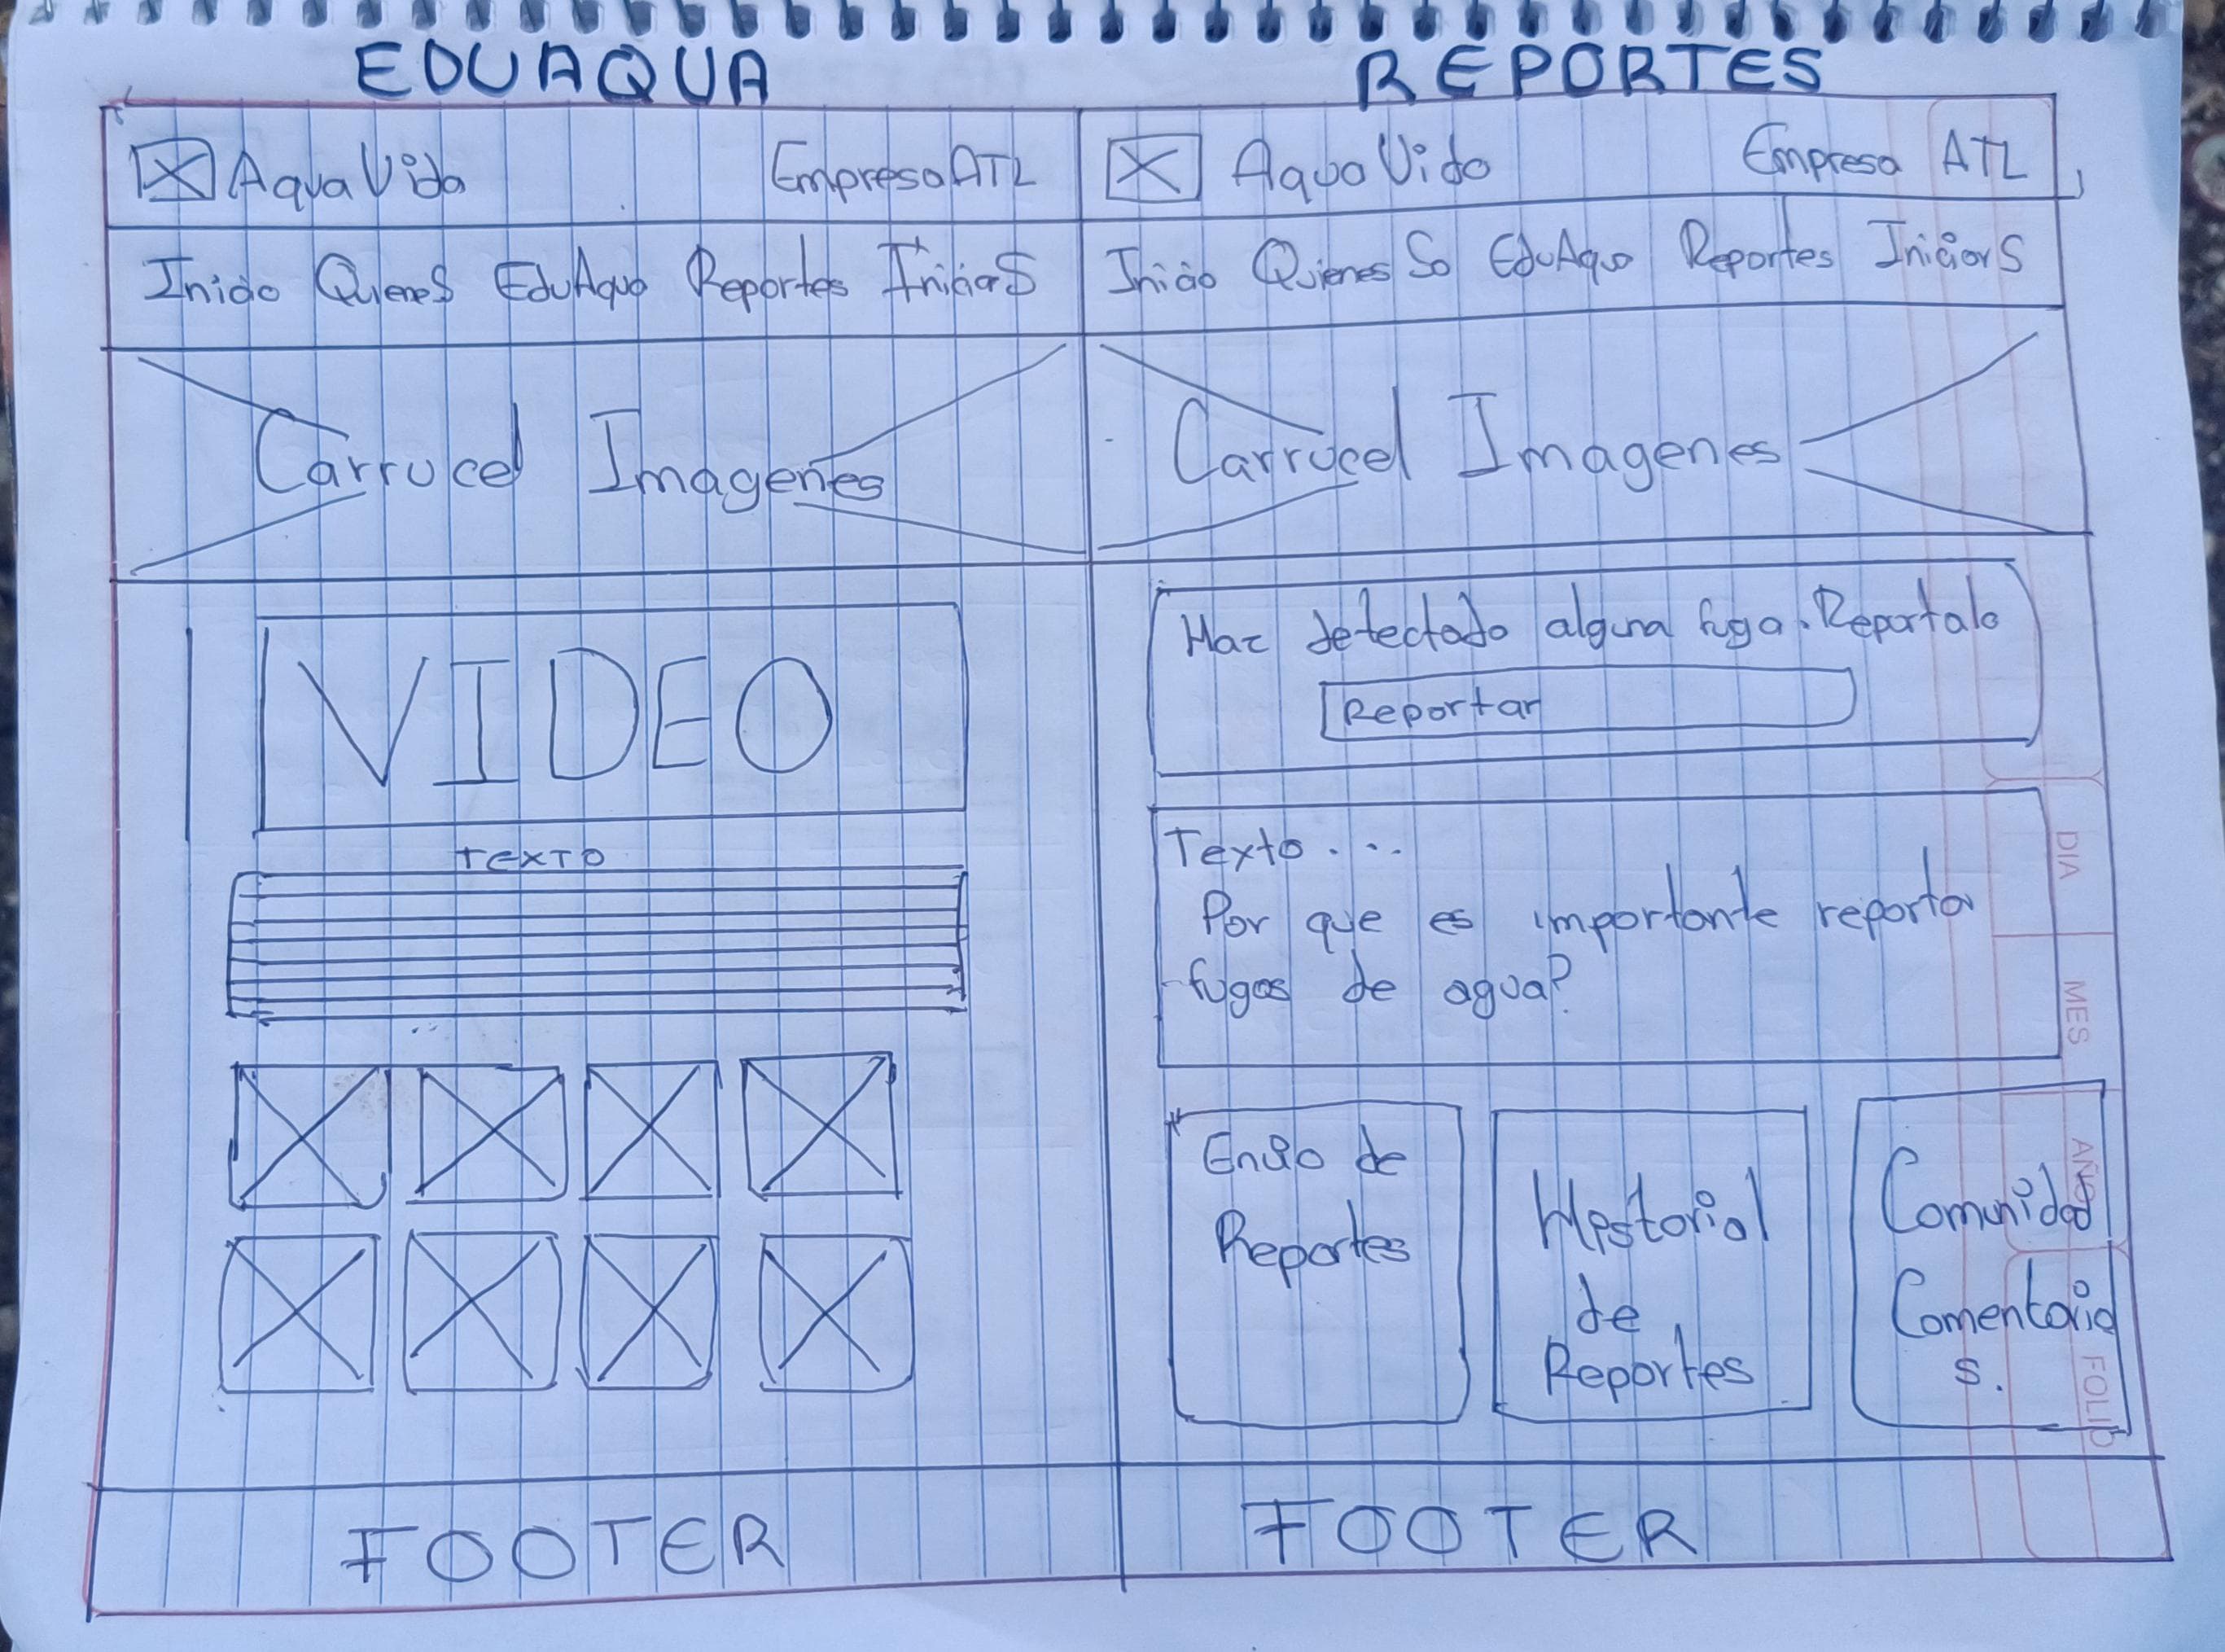 EDUAQUA
AquaVida EmpresaATL
Inicio QuieneS EduAqua Reportes IniciarS
Carrucel Imagenes
VIDEO
TEXTO
FOOTER
REPORTES
AquaVida Empresa ATL
Inicio Quienes So EduAqua Reportes IniciarS
Carrucel Imagenes
Haz detectado alguna fuga. Reportalo
Reportar
Texto....
Por que es importante reportar
fugas de agua?
Envio de
Reportes
Historial
de
Reportes
Comunidad
Comentario
s.
FOOTER
DIA
MES
AÑO
FOLIO